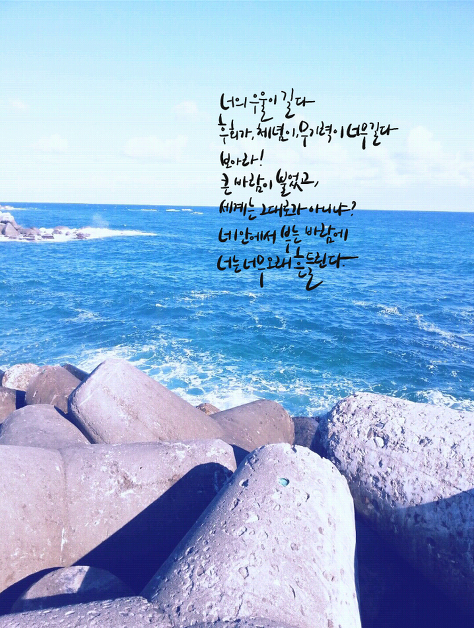 너의 우울이 길다
후회가, 체념이, 무기력이 너무 길다
보아라!
큰 바람이 불었고,
세계는 그대로가 아니냐?
네 안에서 부는 바람에
너는 너무 오래 흔들린다